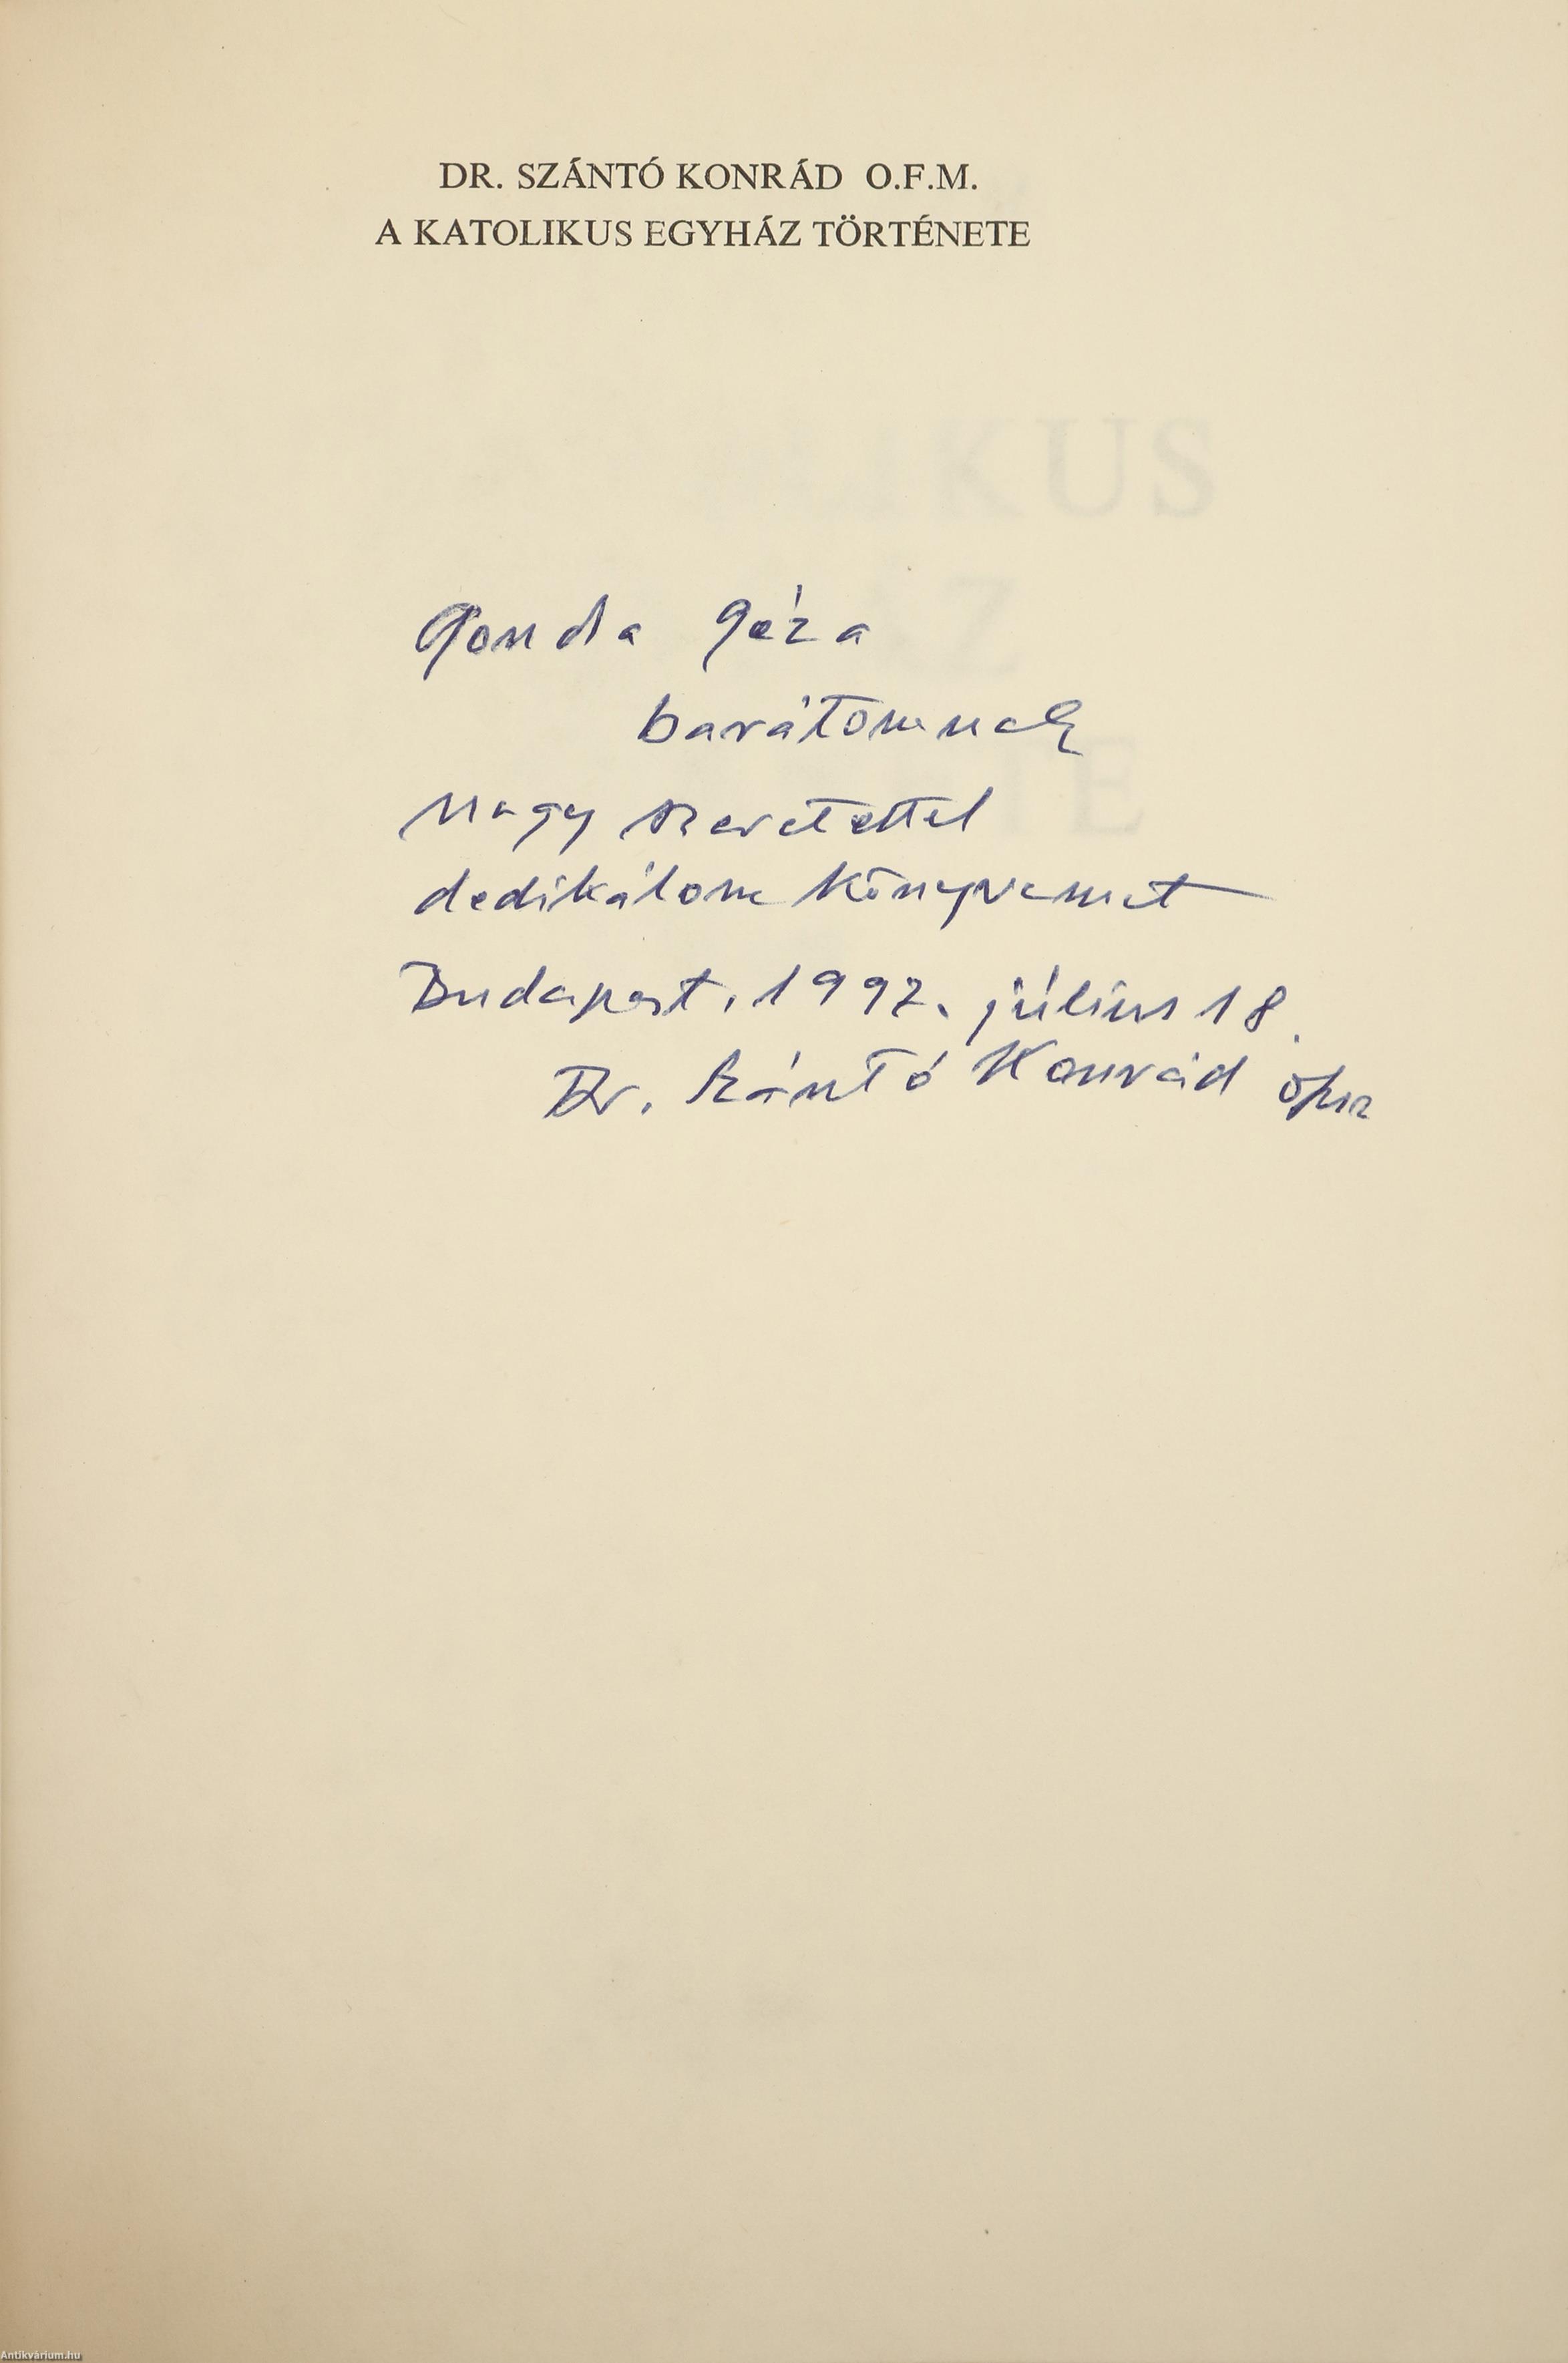 DR. SZÁNTÓ KONRÁD O.F.M.
A KATOLIKUS EGYHÁZ TÖRTÉNETE
Gonda Géza
barátomnak
nagy szeretettel
dedikálom könyvemet
Budapest, 1992. július 18.
Dr. Szántó Konrád ofm
Antikvárium.hu